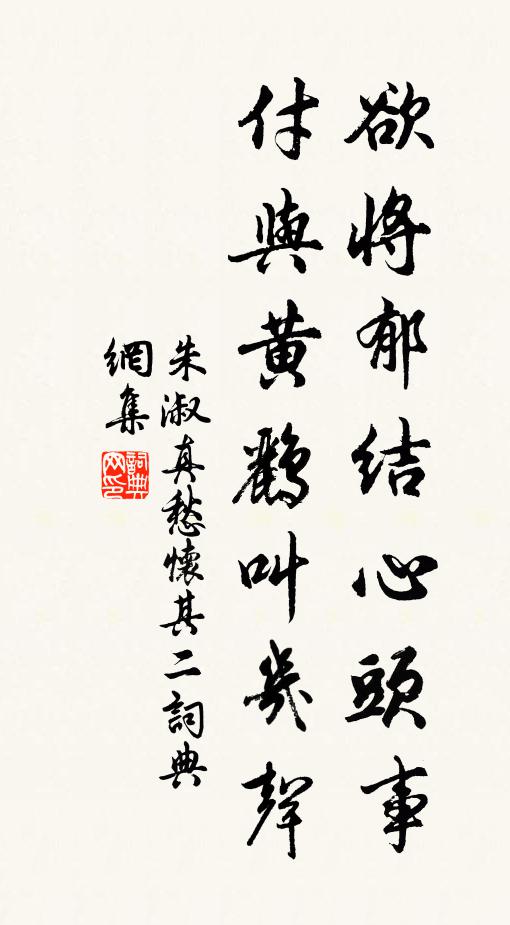 欲將郁結心頭事
付與黄鸝叫幾聲
朱淑真愁懷其二詞典
網集
詞典
网印